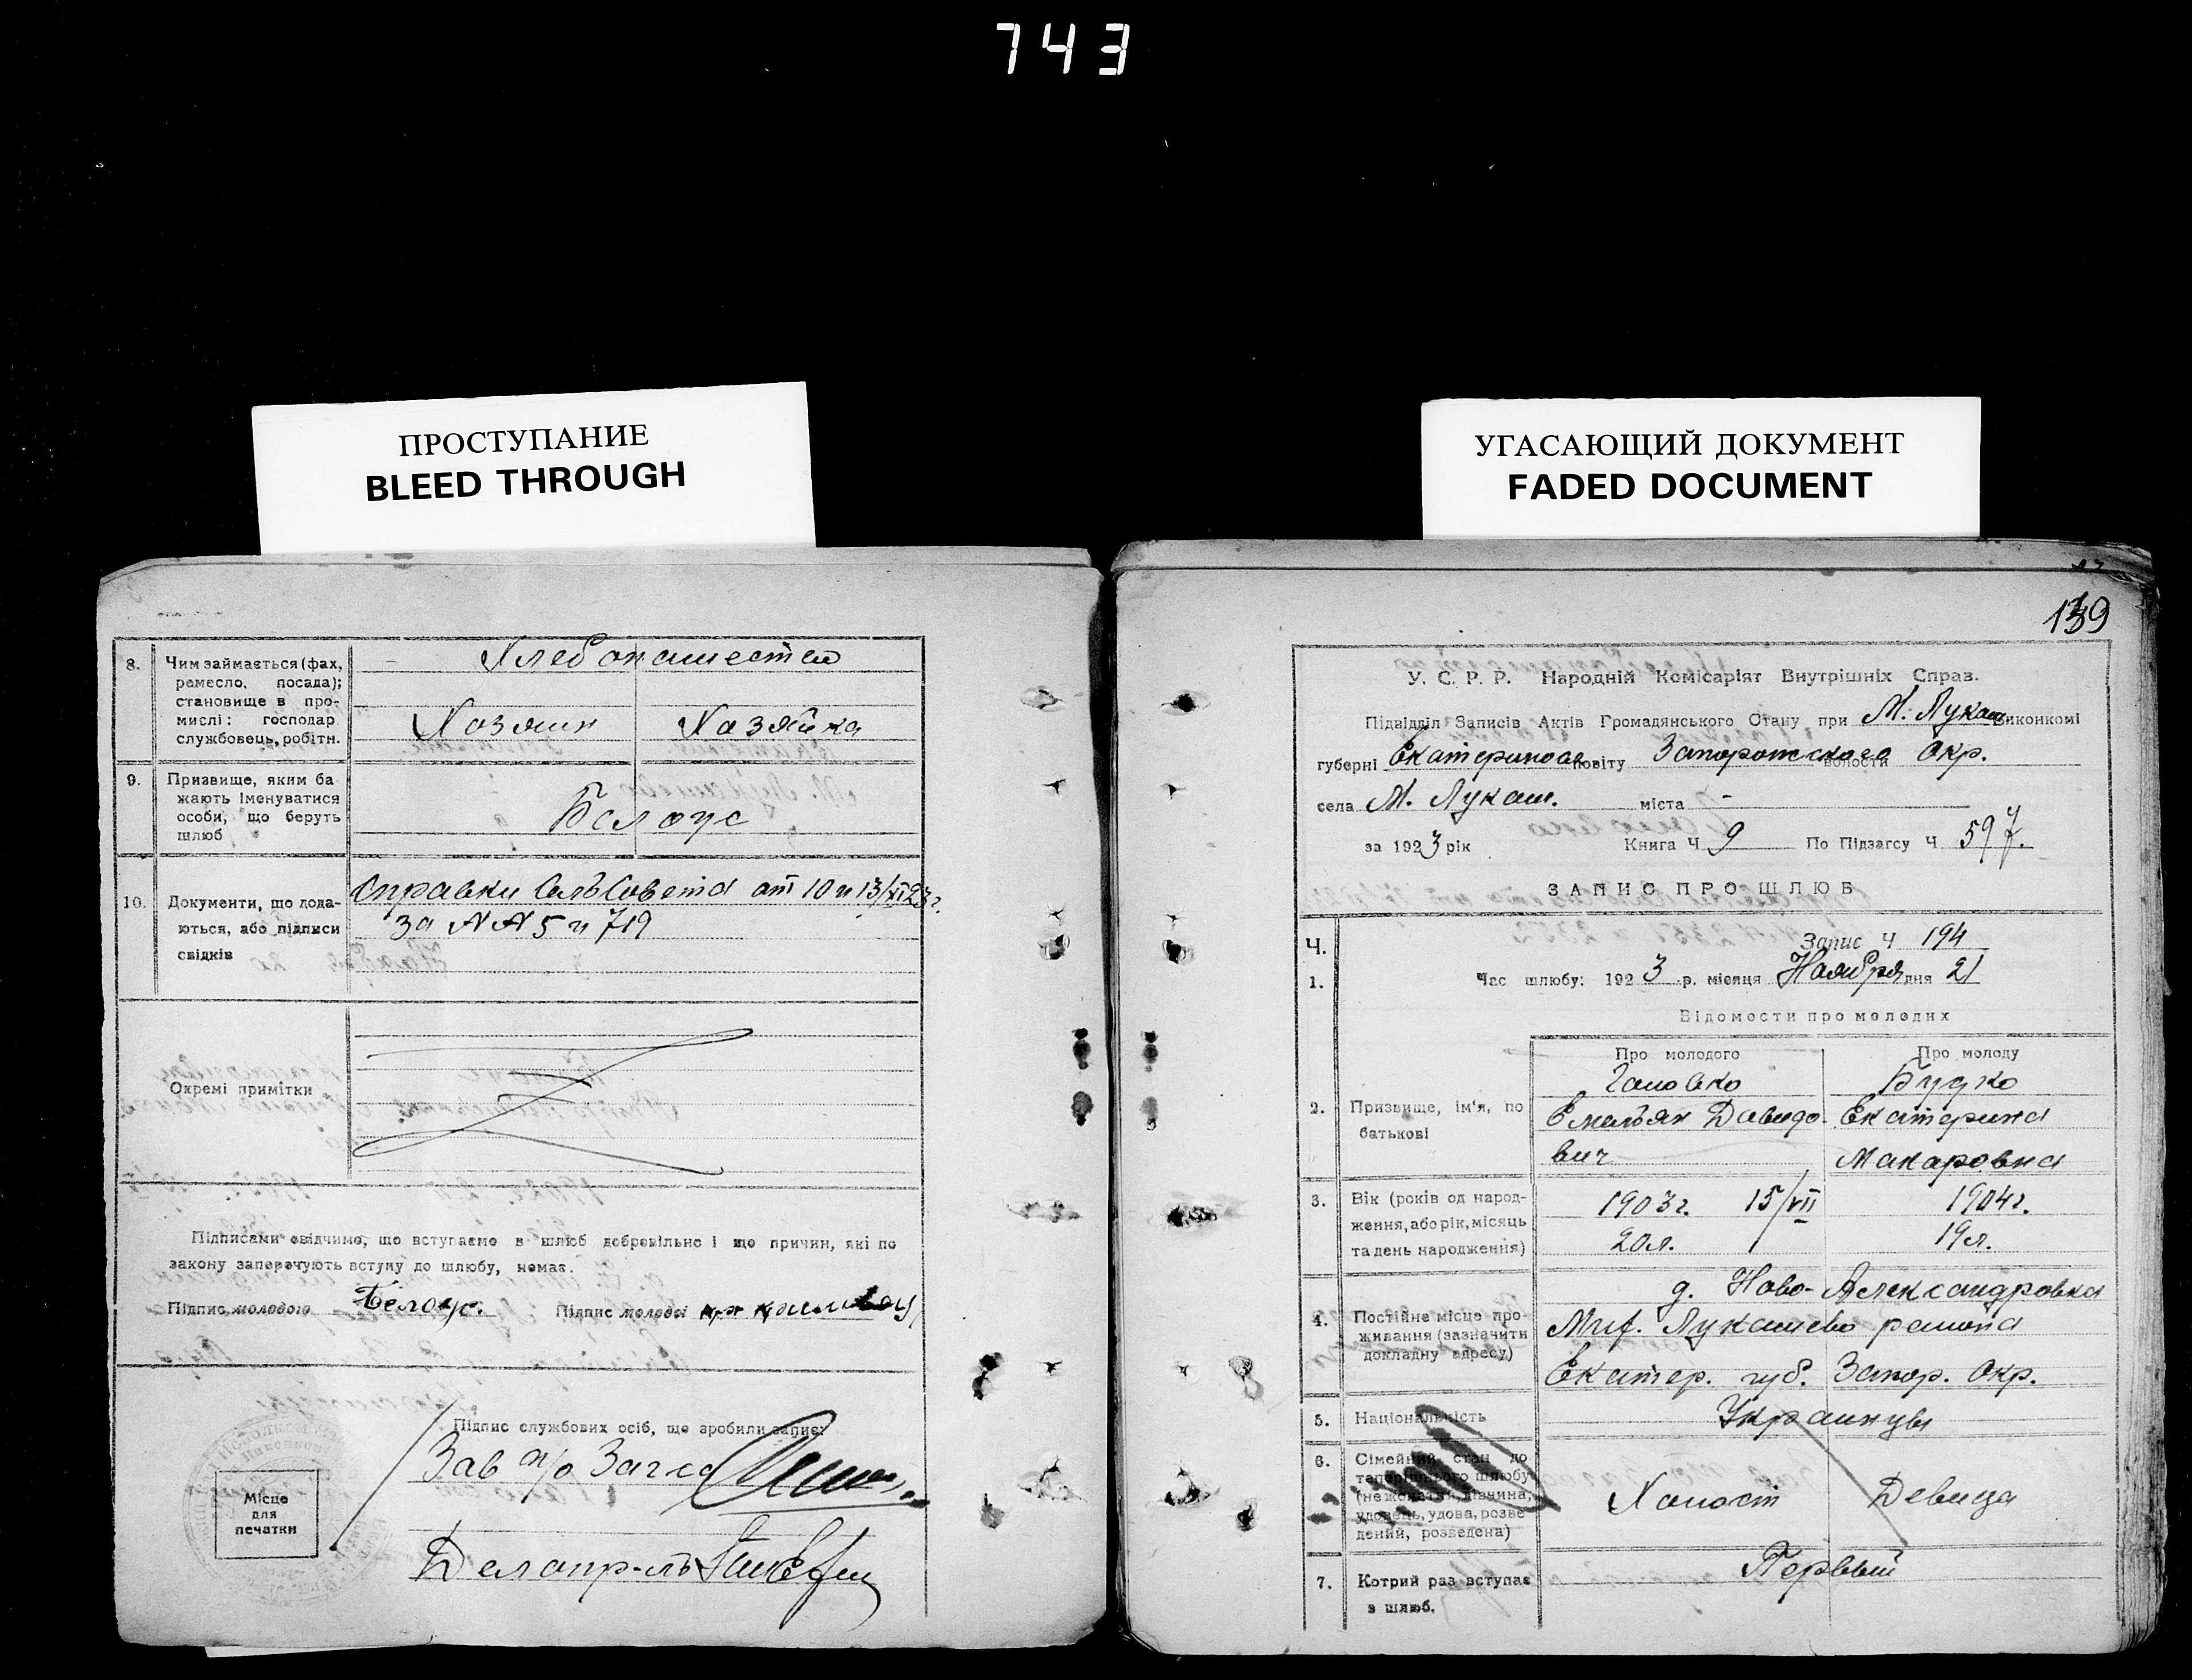 743
ПРОСТУПАНИЕ
BLEED THROUGH
УГАСАЮЩИЙ ДОКУМЕНТ
FADED DOCUMENT
8. Чим займається (фах,
ремесло, посада);
становище в про-
мислі: господар
службовець, робітн.
Хлебопашество
Хозяин Хазяйка
9. Призвище, яким ба-
жають іменуватися
особи, що беруть
шлюб
Белоус
10. Документи, що дода-
ються, або підписи
свідків
Справки СельСовета от 10 и 13/XI 23 г.
за NN 5 и 719
Окремі примітки
Підписами свідчимо, що вступаємо в шлюб добровільно і що причин, які по
закону заперечують вступу до шлюбу, немає.
Підпис молодого Белоус. Підпис молодої
Підпис службових осіб, що зробили запис:
Зав п/о Загса
Делопр-ль
Місце
для
печатки
139
У. С. Р. Р. Народній Комісаріят Внутрішніх Справ.
Підвідділ Записів Актів Громадянського Стану при М. Лукаш виконкомі
губерні Екатеринослав повіту Запорожского волости Окр.
села М. Лукаш. міста -
за 1923 рік Книга Ч 9 По Підзагсу Ч 597.
ЗАПИС ПРО ШЛЮБ
Ч. Запис Ч 194
1. Час шлюбу: 1923 р. місяця Ноября дня 21
Відомости про молодих
Про молодого Про молоду
2. Призвище, ім'я, по
батькові
Головко Будко
Емельян Давидо- Екатерина
вич Макаровна
3. Вік (років од народ-
ження, або рік, місяць
та день народження)
1903 г. 15/VII 1904 г.
20 л. 19 л.
4. Постійне місце про-
живання (зазначити
докладну адресу)
д. Ново-Александровка
Мих. Лукашево района
Екатер. губ. Запор. Окр.
5. Національність
Украинцы
6. Сімейний стан до
теперішнього шлюбу
(нежонатий, дівчина,
удовець, удова, розве-
дений, розведена)
Холост Девица
7. Котрий раз вступає
в шлюб.
Первый